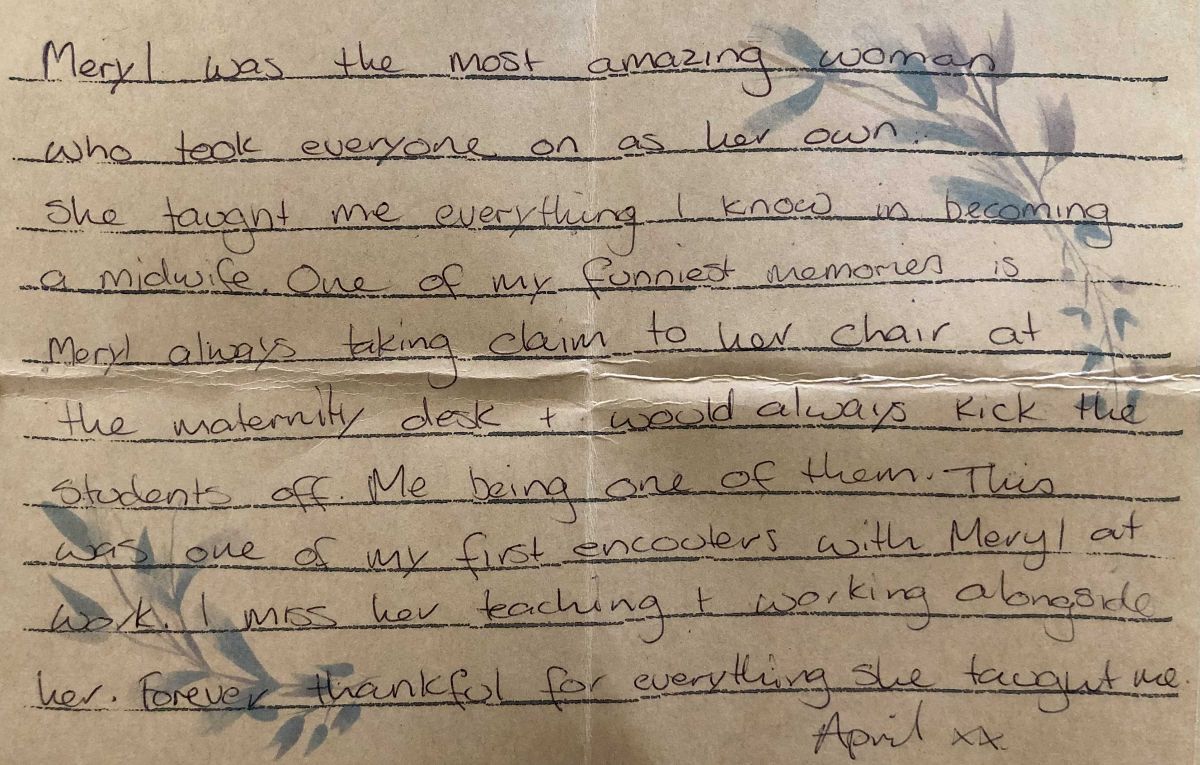 Meryl was the most amazing woman
who took everyone on as her own.
She taught me everything I know in becoming
a midwife. One of my funniest memories is
Meryl always taking claim to her chair at
the maternity desk + would always kick the
students off. Me being one of them. This
was one of my first encouters with Meryl at
work. I miss her teaching + working alongside
her. Forever thankful for everything she taught me.
April xx